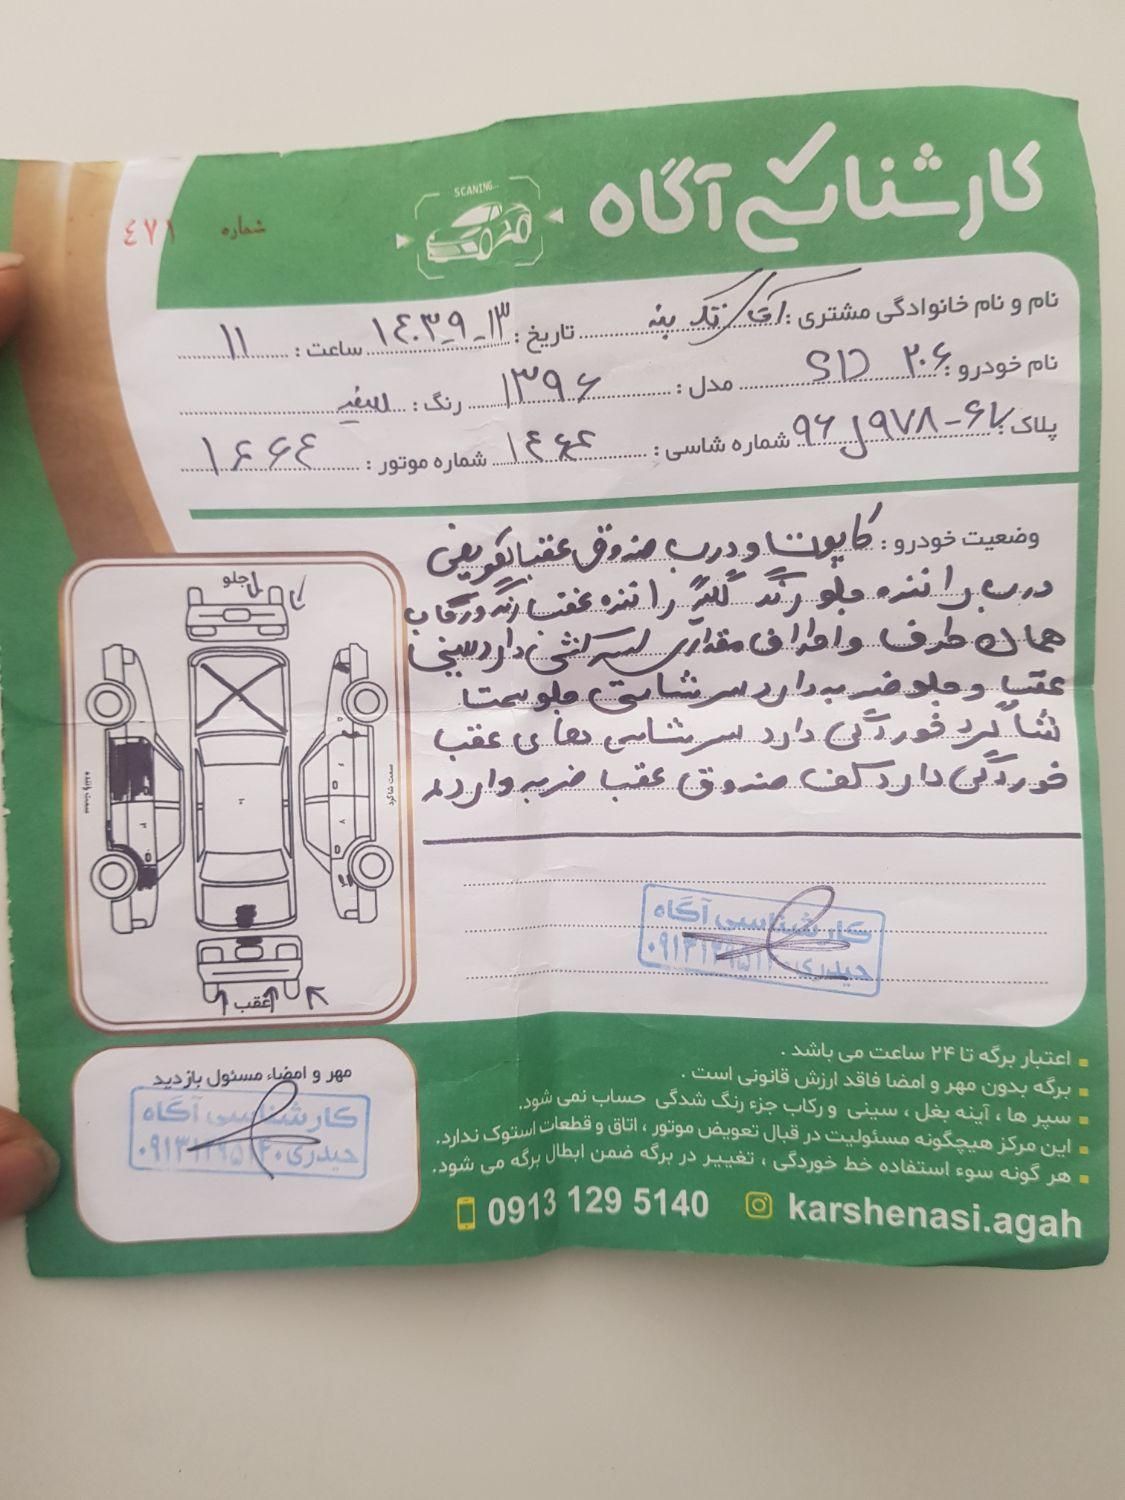 کارشناسی آگاه
SCANING...
شماره ٤٧١
نام و نام خانوادگی مشتری: آقای
تاریخ: ۱۴۰۳-۹-۱۳ ساعت: ۱۱
نام خودرو: ۲۰۶ SD مدل: ۱۳۹۶ رنگ: سفید
پلاک: ۹۷۸-۶۷ل۹۶ شماره شاسی: ۱۴۶۴ شماره موتور: ۱۶۶۴
وضعیت خودرو: کاپوت و درب صندوق عقب تعویض
درب راننده جلو رنگ گلگیر راننده عقب رنگ و رکاب
همان طرف و اطراف مقداری لیسه کشی دارد سینی
عقب و جلو ضربه دارد سرشاسی جلو سمت
شاگرد خوردگی دارد سرشاسی های عقب
خوردگی دارد کف صندوق عقب ضربه وارده
جلو
سمت راننده
سمت شاگرد
عقب
کارشناسی آگاه
حیدری ۰۹۱۳۱۲۹۵۱۴۰
مهر و امضاء مسئول بازدید
کارشناسی آگاه
حیدری ۰۹۱۳۱۲۹۵۱۴۰
اعتبار برگه تا ۲۴ ساعت می باشد .
برگه بدون مهر و امضا فاقد ارزش قانونی است .
سپر ها ، آینه بغل ، سینی و رکاب جزء رنگ شدگی حساب نمی شود.
این مرکز هیچگونه مسئولیت در قبال تعویض موتور ، اتاق و قطعات استوک ندارد.
هر گونه سوء استفاده خط خوردگی ، تغییر در برگه ضمن ابطال برگه می شود.
0913 129 5140 karshenasi.agah